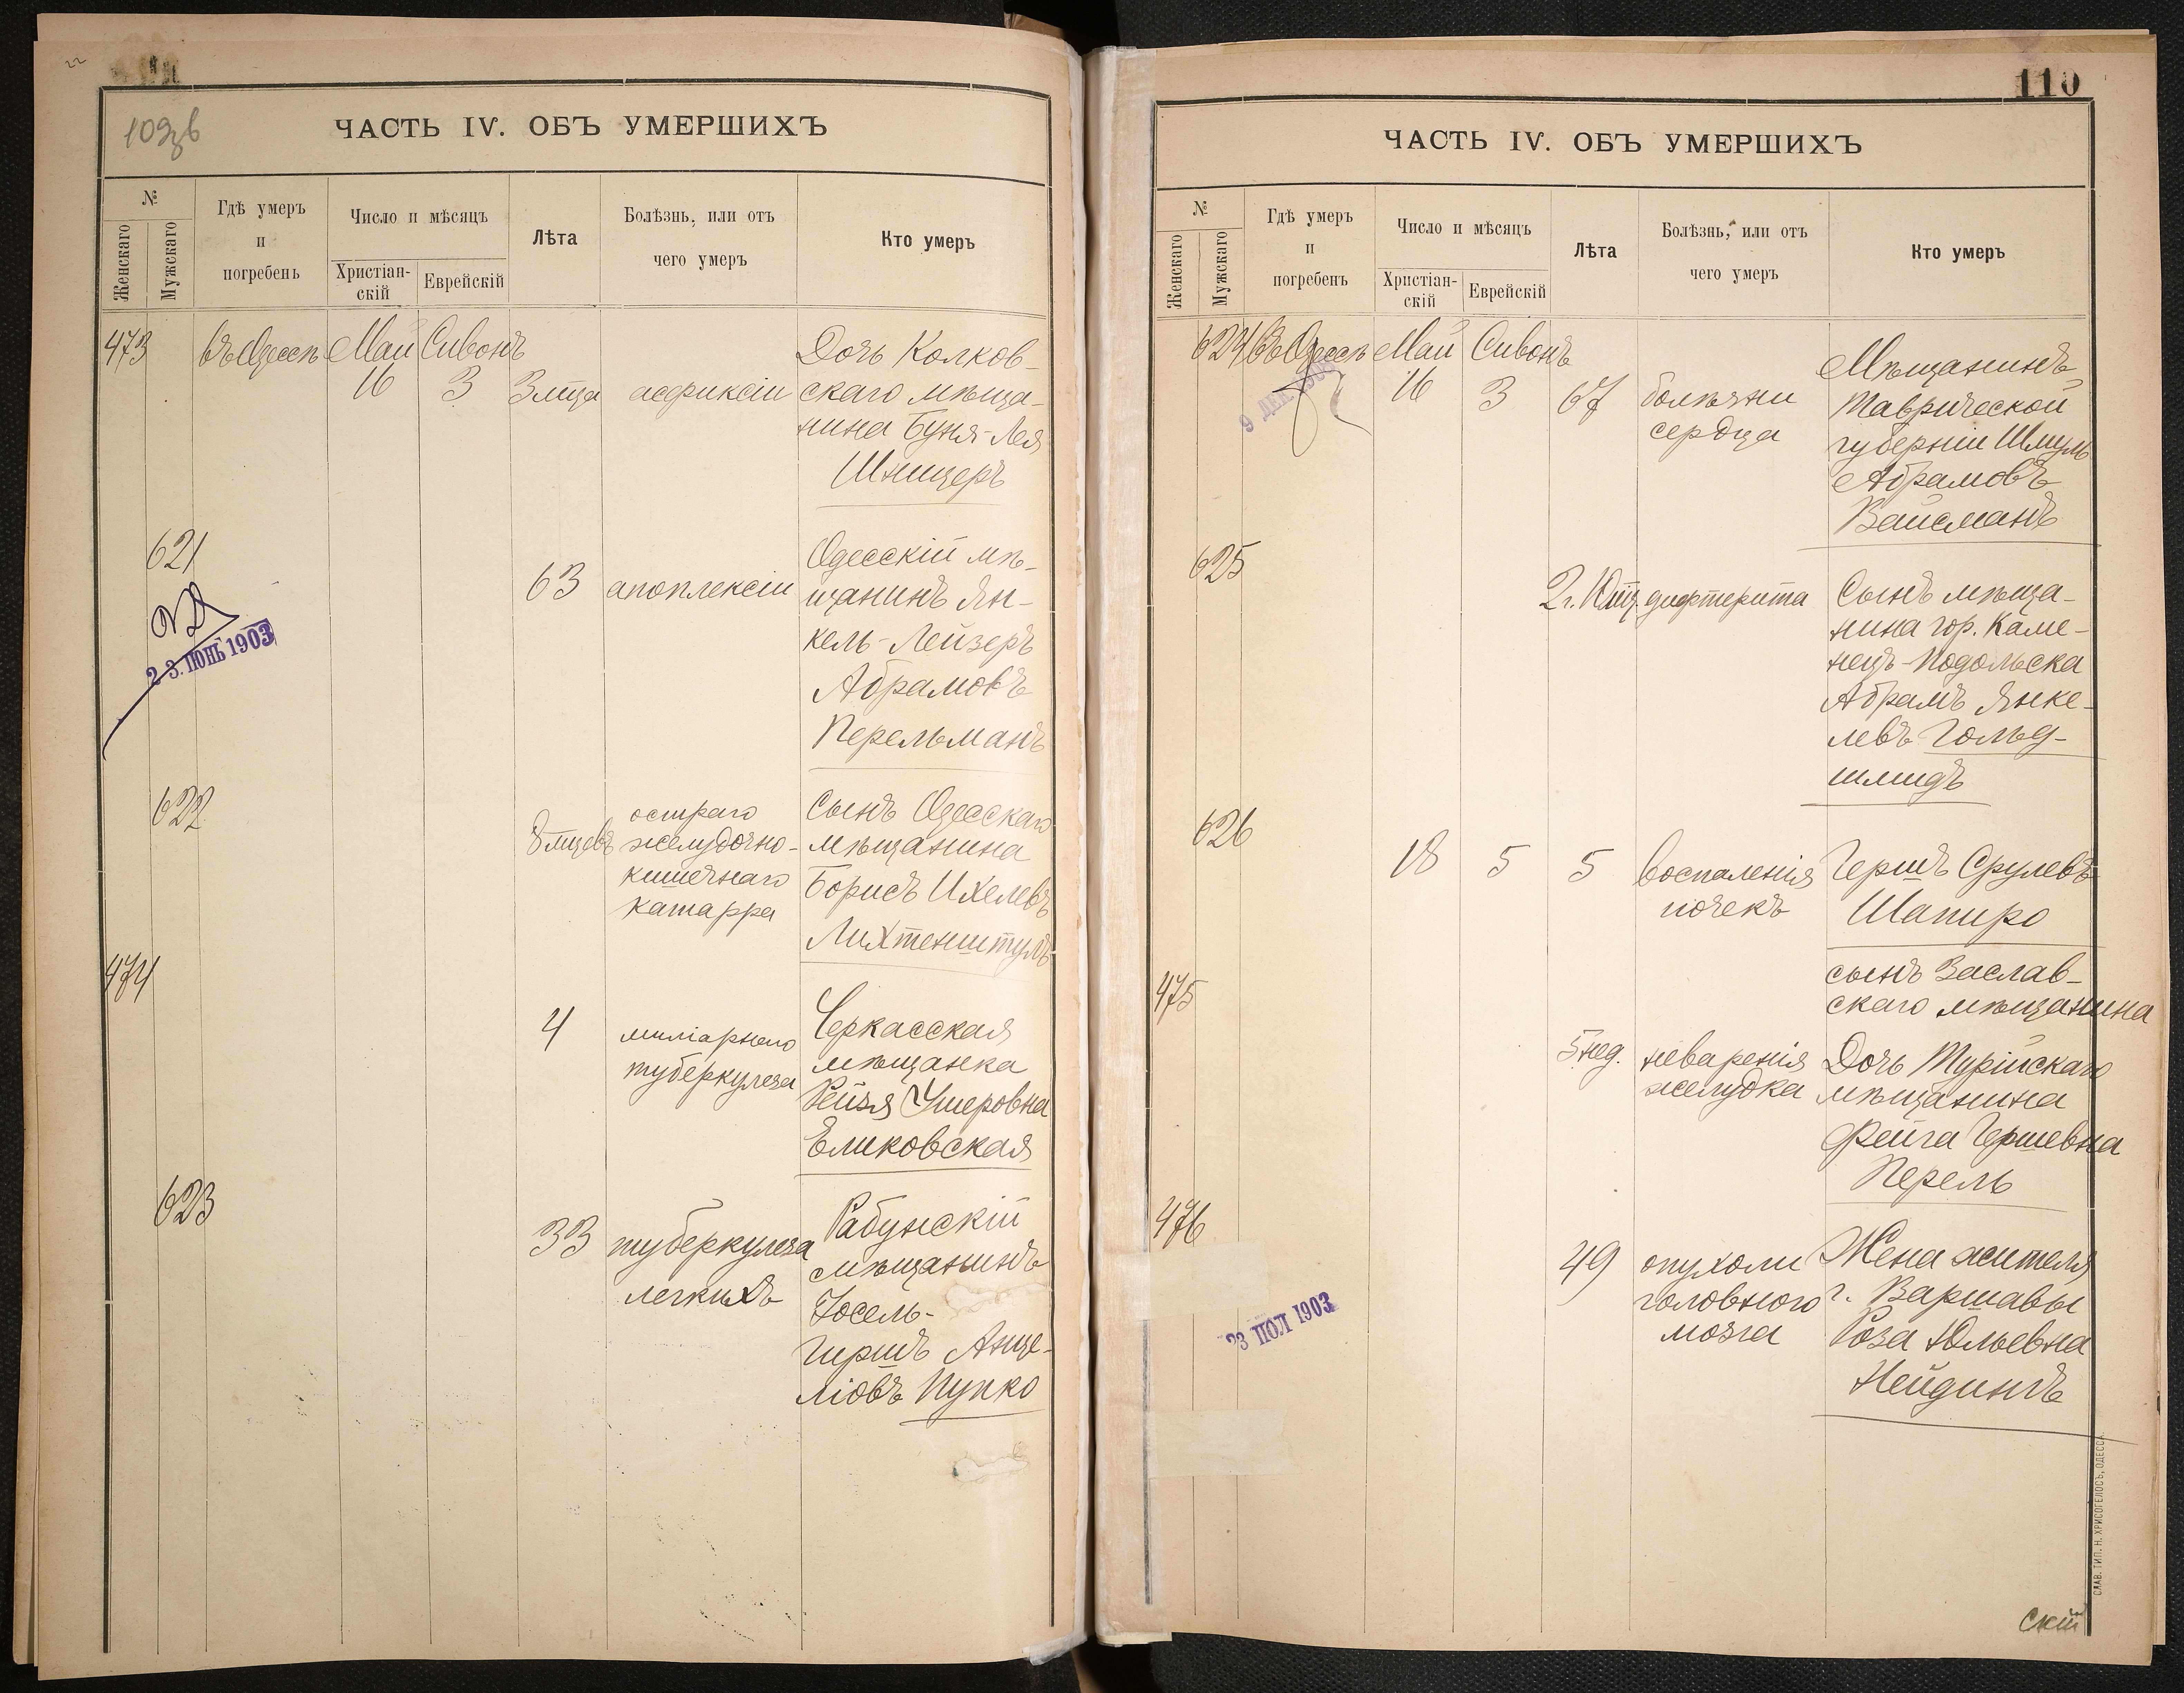 109зв
ЧАСТЬ IV. ОБЪ УМЕРШИХЪ
№
Женскаго
Мужскаго
Гдѣ умеръ
и
погребенъ
Число и мѣсяцъ
Христіан-
скій
Еврейскій
Лѣта
Болѣзнь, или отъ
чего умеръ
Кто умеръ
473 въ Одессѣ Май Сивонъ Дочь Колков-
16 3 3 мца асфиксіи скаго мѣща-
нина Буня-Лея
Шницеръ
621
Одесскій мѣ-
63 апоплексіи щанинъ Ян-
кель-Лейзеръ
23. ІЮНЬ 1903
Абрамовъ
Перельманъ
622
остраго Сынъ Одесскаго
8 мцевъ желудочно- мѣщанина
кишечнаго Борисъ Ихелевъ
катарра
Лихтенштулъ
474
Черкасская
4 миліарнаго мѣщанка
туберкулеза Рейзя Ушеровна
Еликовская
623
Рабунскій
33 туберкулеза мѣщанинъ
легкихъ Іосель-
Гиршъ Анце-
ліовъ Пупко
110
ЧАСТЬ IV. ОБЪ УМЕРШИХЪ
№
Женскаго
Мужскаго
Гдѣ умеръ
и
погребенъ
Число и мѣсяцъ
Христіан-
скій
Еврейскій
Лѣта
Болѣзнь, или отъ
чего умеръ
Кто умеръ
624 въ Одессѣ Май Сивонъ Мѣщанинъ
9 ДЕК 1903
16 3 67 болѣзни Таврической
сердца губерніи Шмуль
Абрамовъ
Вайсманъ
625
2 г. 10 мц. дифтерита Сынъ мѣща-
нина гор. Каме-
нецъ-Подольска
Абрамъ Янке-
левъ Гольд-
шмидъ
626
18 5 5 воспаленія Гершъ Срулевъ
почекъ Шапиро
сынъ Заслав-
скаго мѣщанина
475
5 нед. неваренія Дочь Турійскаго
желудка мѣщанина
Фейга Гершевна
Перель
476
49 опухоли Жена жителя
головного г. Варшавы
мозга Роза Юльевна
Нейдингъ
23 ІЮЛ 1903
СЛАВ. ТИП. Н. ХРИСОГЕЛОСЪ, ОДЕССА.
скій